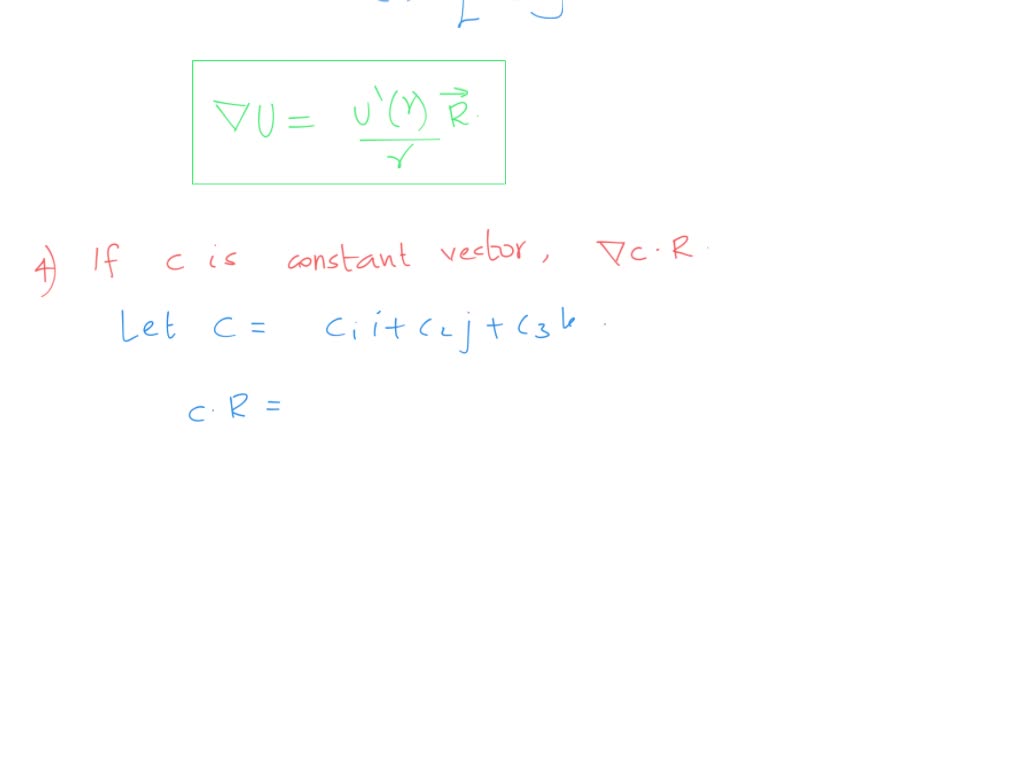 ∇U = U'(r) R⃗ / r
4) If c is constant vector, ∇c·R.
Let C = c₁i + c₂j + c₃k.
c·R =